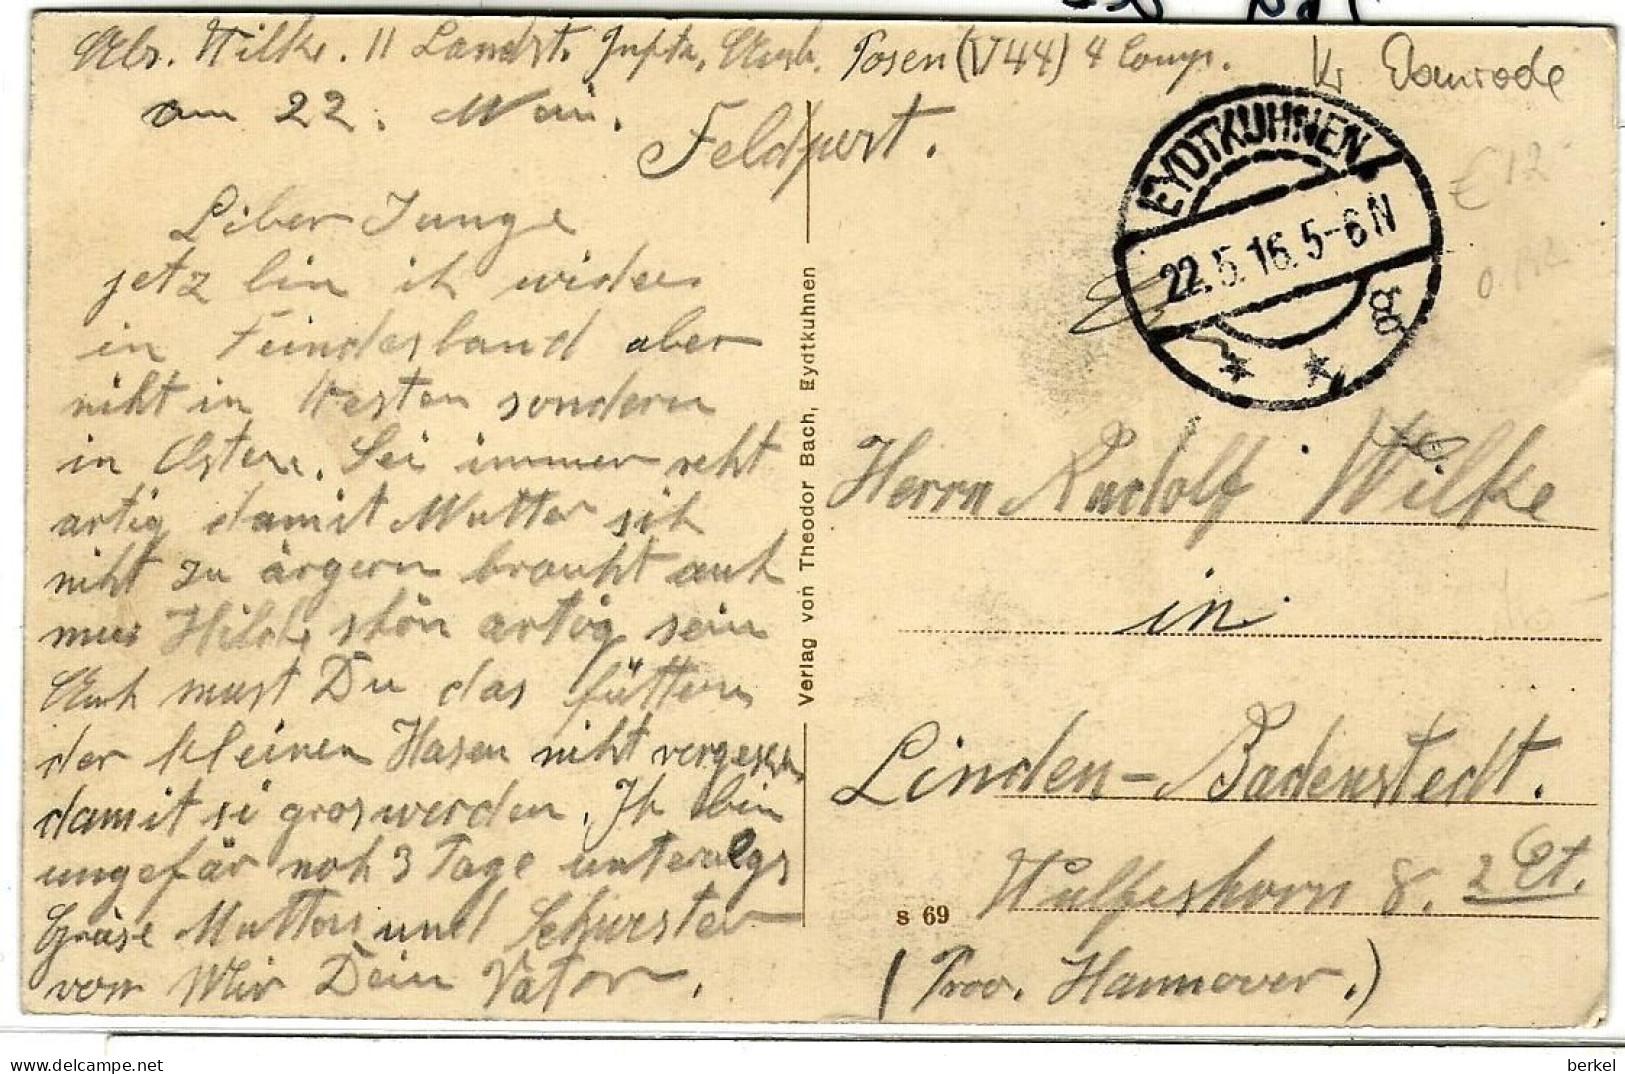 Abs. Wilke. II Landst. Inftr. Ausb. Posen (V44) 4 Comp.
am 22. Mai.
Feldpost.
Kr
EYDTKUHNEN
22.5.16.5-6N
€ 12
Liber Junge
jetz bin ich wider
in Feindesland aber
nicht in Westen sondern
in Osten. Sei immer recht
artig damit Mutter sich
nicht zu ärgern braucht auch
mus Hilde schön artig sein
Auch must Du das füttern
der kleinen Hasen nicht vergessen
damit si gros werden. Ich bin
ungefär noch 3 Tage unterwegs
Grüse Mutter und Schwester
von Mir Dein Vater.
Verlag von Theodor Bach, Eydtkuhnen
Herrn Rudolf Wilke
in
Linden-Badenstedt.
Wulfeshorn 8. 2 Et.
(Prov. Hannover.)
s 69
berkel